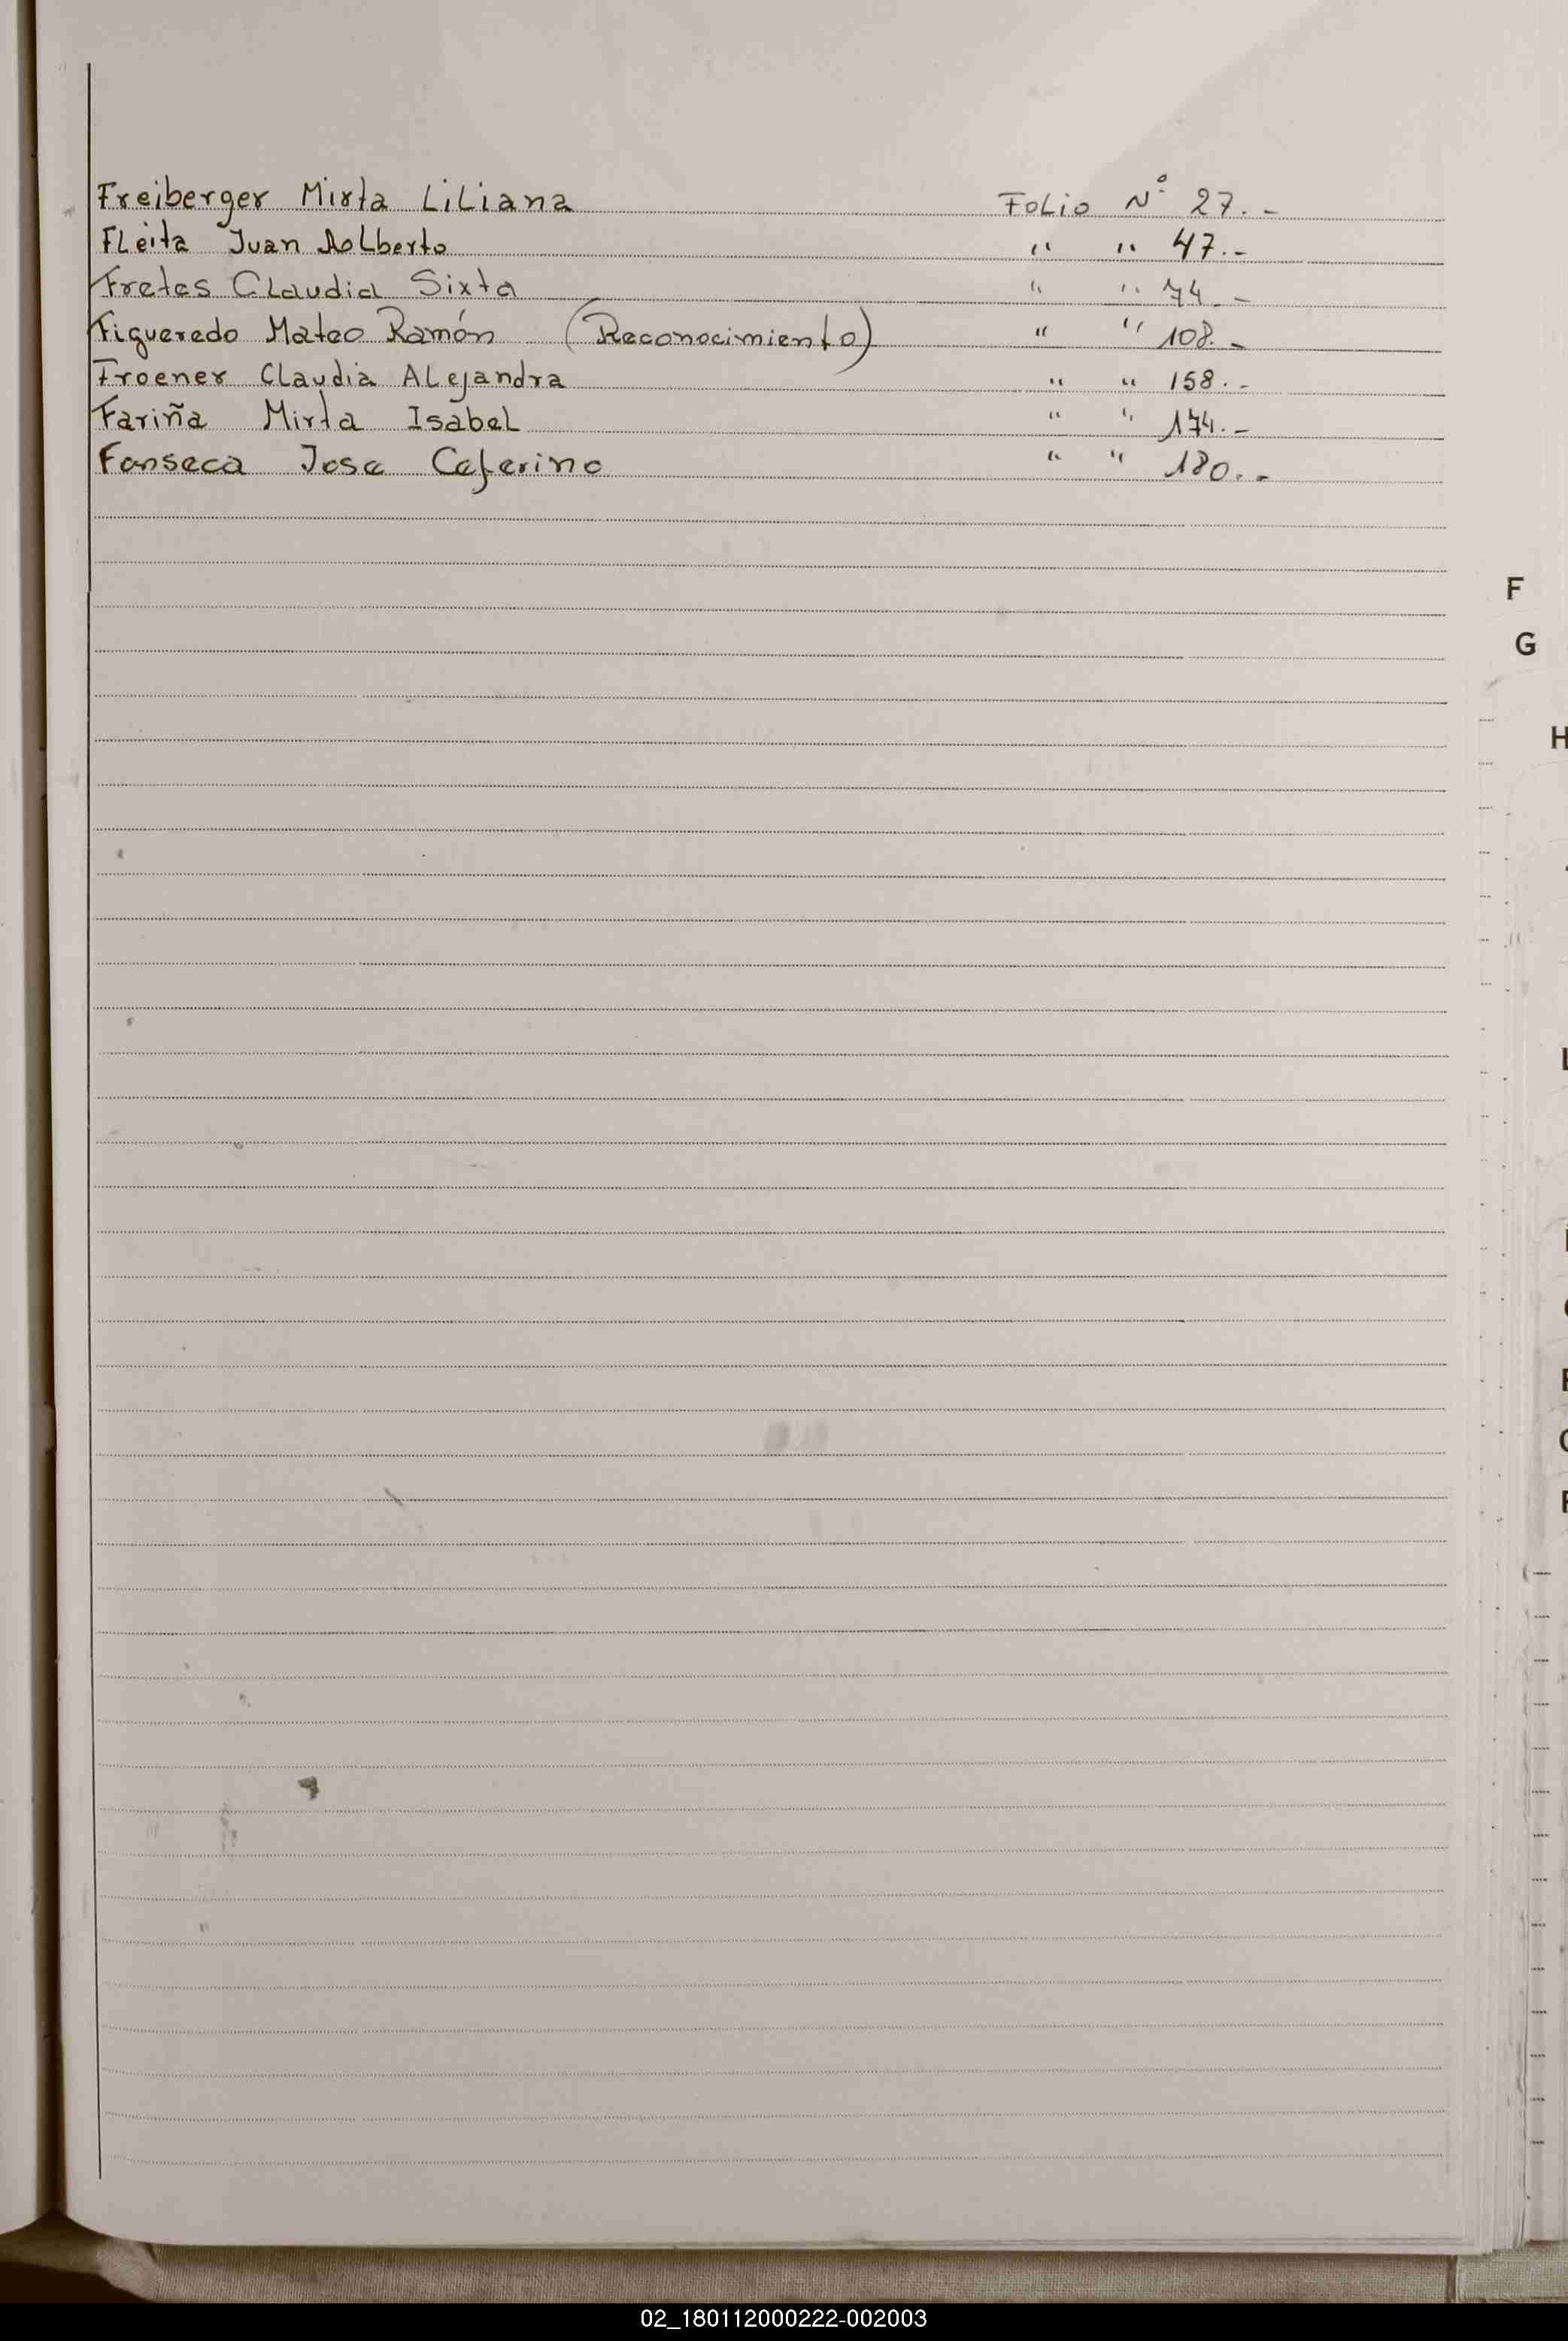 Freiberger Mirta Liliana Folio N° 27.-
Fleita Juan Adlberto " " 47.-
Fretes Claudia Sixta " " 74.-
Figueredo Mateo Ramón (Reconocimiento) " " 108.-
Froener Claudia Alejandra " " 158.-
Fariña Mirta Isabel " " 174.-
Fonseca Jose Ceferino " " 180.-
F
G
H
L
02_180112000222-002003